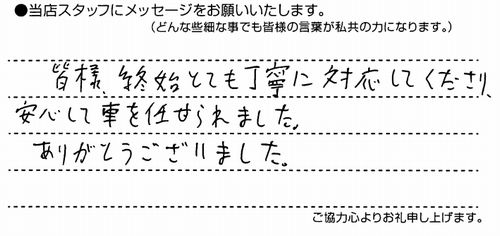 ●当店スタッフにメッセージをお願いいたします。
（どんな些細な事でも皆様の言葉が私共の力になります。）
皆様、終始とても丁寧に対応してくださり、
安心して車を任せられました。
ありがとうございました。
ご協力心よりお礼申し上げます。